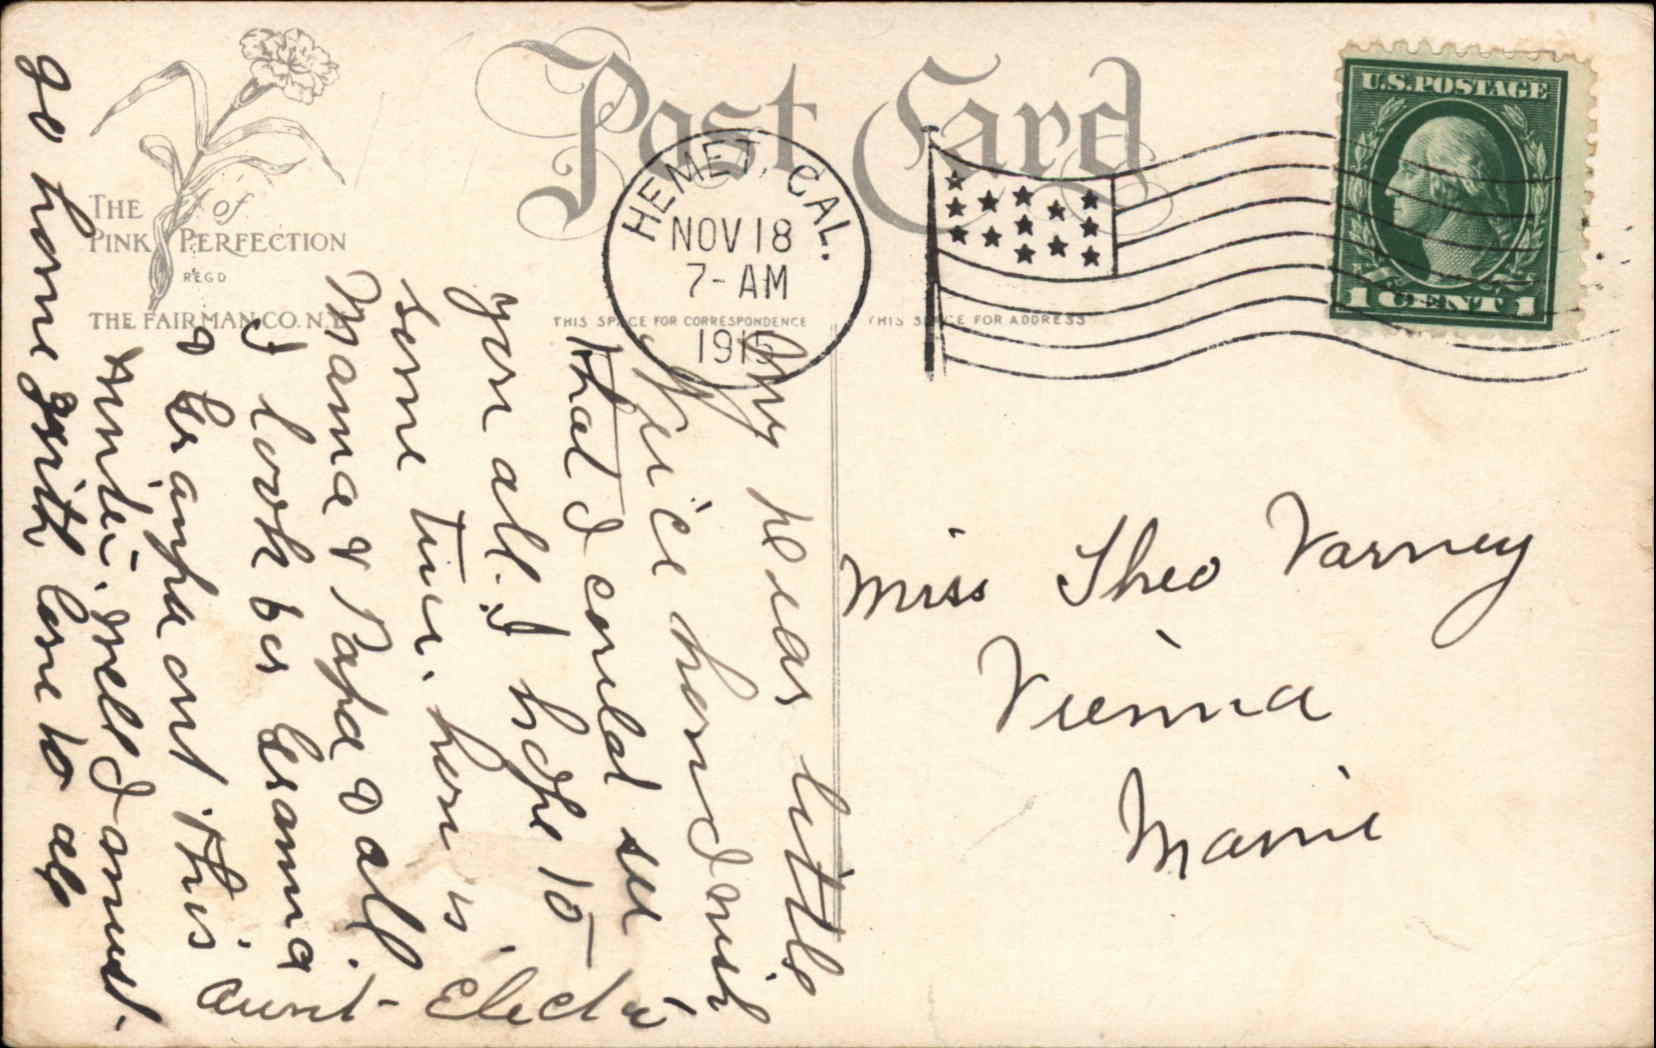 Post Card
THE of
PINK PERFECTION
REGD
THE FAIRMAN CO. N.Y.
THIS SPACE FOR CORRESPONDENCE
THIS SPACE FOR ADDRESS
HEMET, CAL.
NOV 18
7-AM
1915
U.S. POSTAGE
1 CENT 1
My dear little
neice how I wish
that I could see
you all. I hope to
some time. how is
Mama & Papa & all.
I look for Grama
& Grampa out this
winter. well I must
go home with love to all
Aunt Electa
Miss Theo Varney
Vienna
Maine